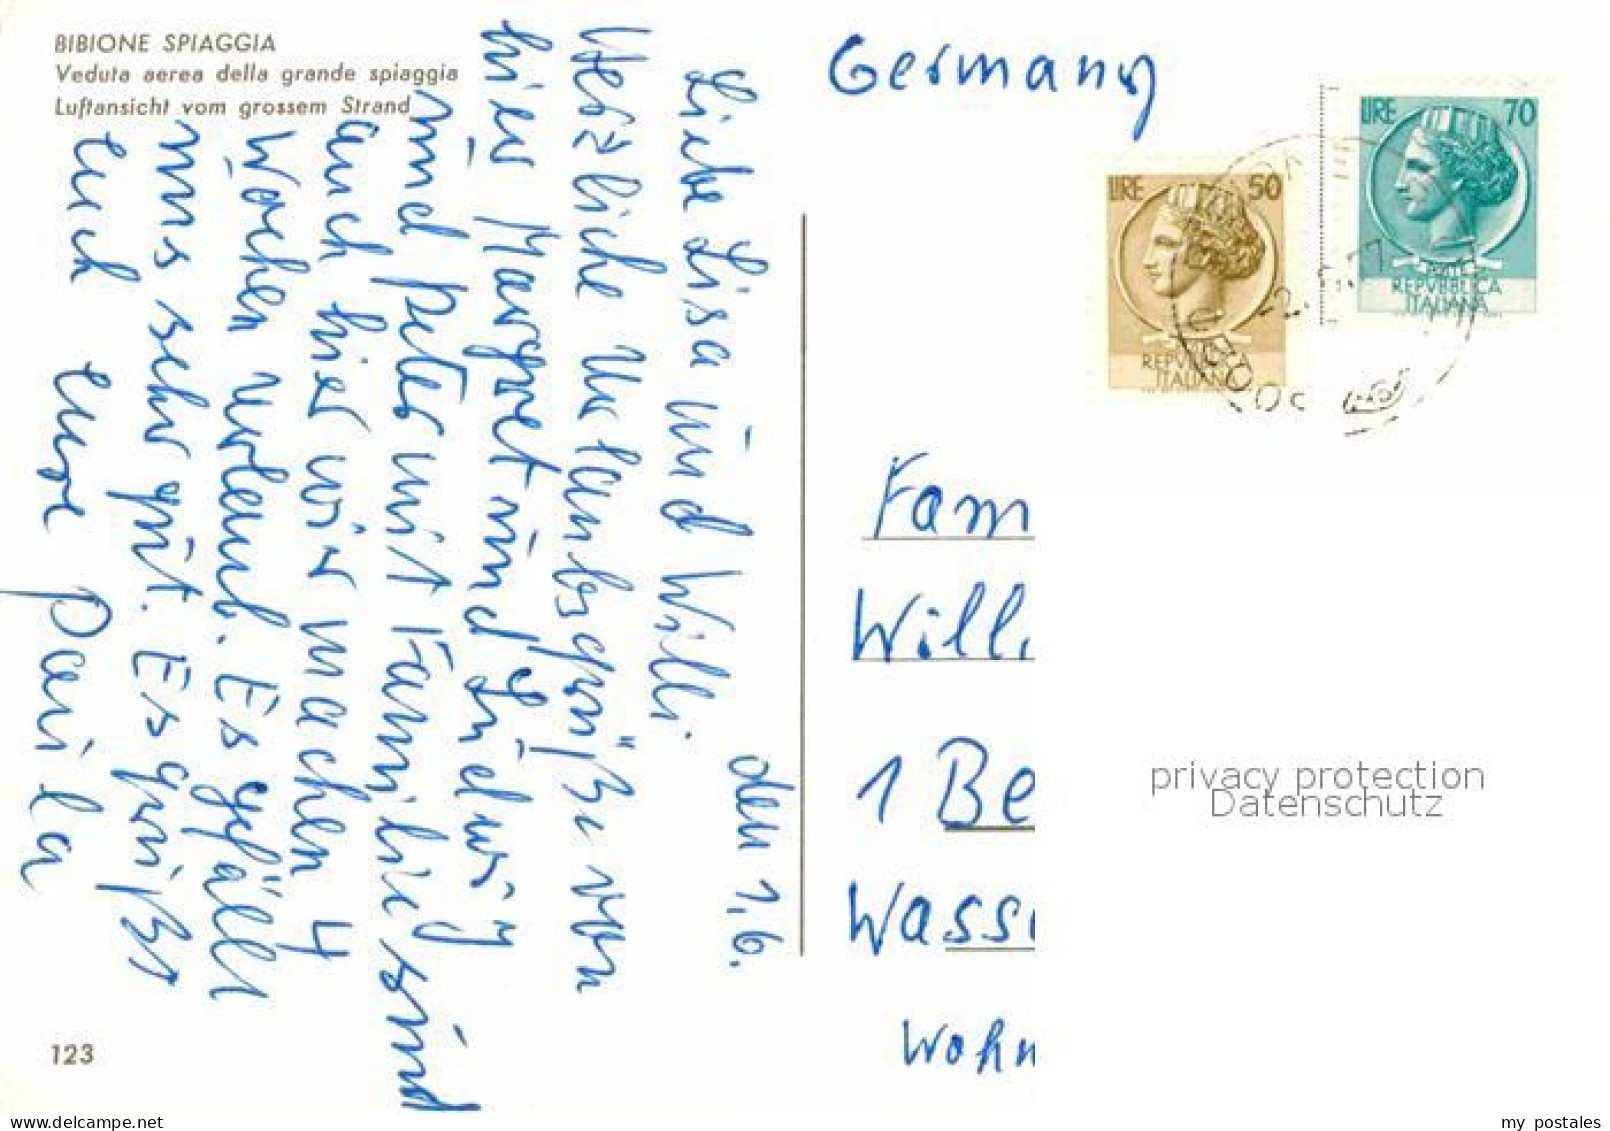 BIBIONE SPIAGGIA
Veduta aerea della grande spiaggia
Luftansicht vom grossem Strand
den 1.6.
Liebe Lisa und Willi.
Herzliche Urlaubsgrüße von
hier Margret und Ludwig
und Peter mit Familie sind
auch hier wir machen 4
Wochen Urlaub. Es gefällt
uns sehr gut. Es grüßt
euch eure Paula
123
Germany
LIRE 50
REPVBBLICA
ITALIANA
LIRE 70
REPVBBLICA
ITALIANA
Fam
Willi
1 Be
Wass
Wohn
privacy protection
Datenschutz
www.delcampe.net
my_postales